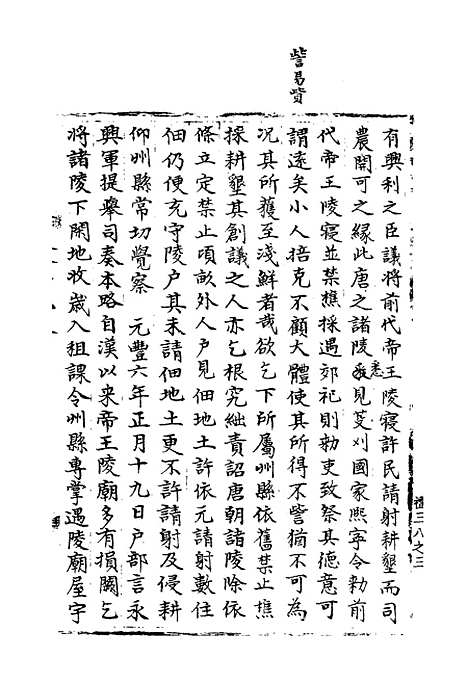 訾易貲
有興利之臣議將前代帝王陵寢許民請射耕墾而司
農開可之緣此唐之諸陵悉見芟刈國家熙寧令勑前
代帝王陵寢並禁樵採遇郊祀則勑吏致祭其德意可
謂遠矣小人掊克不顧大體使其所得不訾猶不可為
况其所獲至淺鮮者哉欲乞下所屬州縣依舊禁止樵
採耕墾其創議之人亦乞根究絀責詔唐朝諸陵除依
條立定禁止頃畝外人戶見佃地土許依元請射數住
佃仍便充守陵戶其未請佃地土更不許請射及侵耕
仰州縣常切覺察 元豐六年正月十九日戶部言永
興軍提舉司奏本路自漢以來帝王陵廟多有損闕乞
將諸陵下閑地收歲入租課令州縣專掌遇陵廟屋宇
禮三八之三